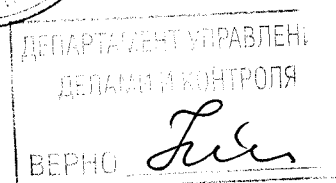 ДЕПАРТАМЕНТ УПРАВЛЕНИ
ДЕЛАМИ И КОНТРОЛЯ
ВЕРНО